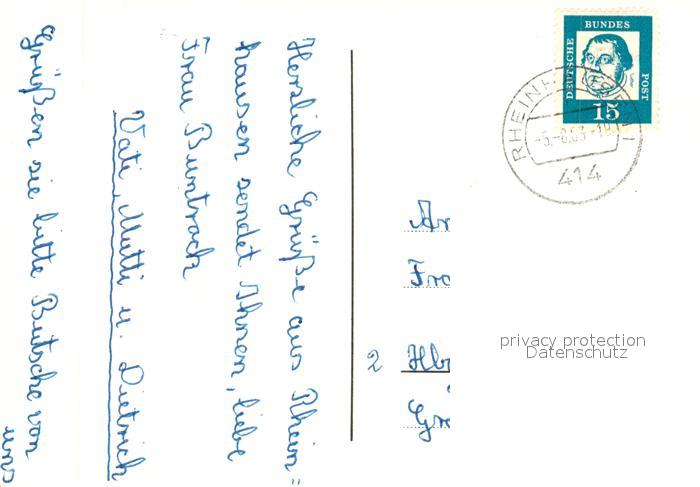 Herzliche Grüße aus Rhein=
hausen sendet Ihnen, liebe
Frau Buntrock
Vati, Mutti u. Dietrich
Grüßen sie bitte Butsche von
uns
DEUTSCHE BUNDES POST
15
RHEINH
-5.-8.63-18
414
An
Fra
2 Hbr
Gr
privacy protection
Datenschutz